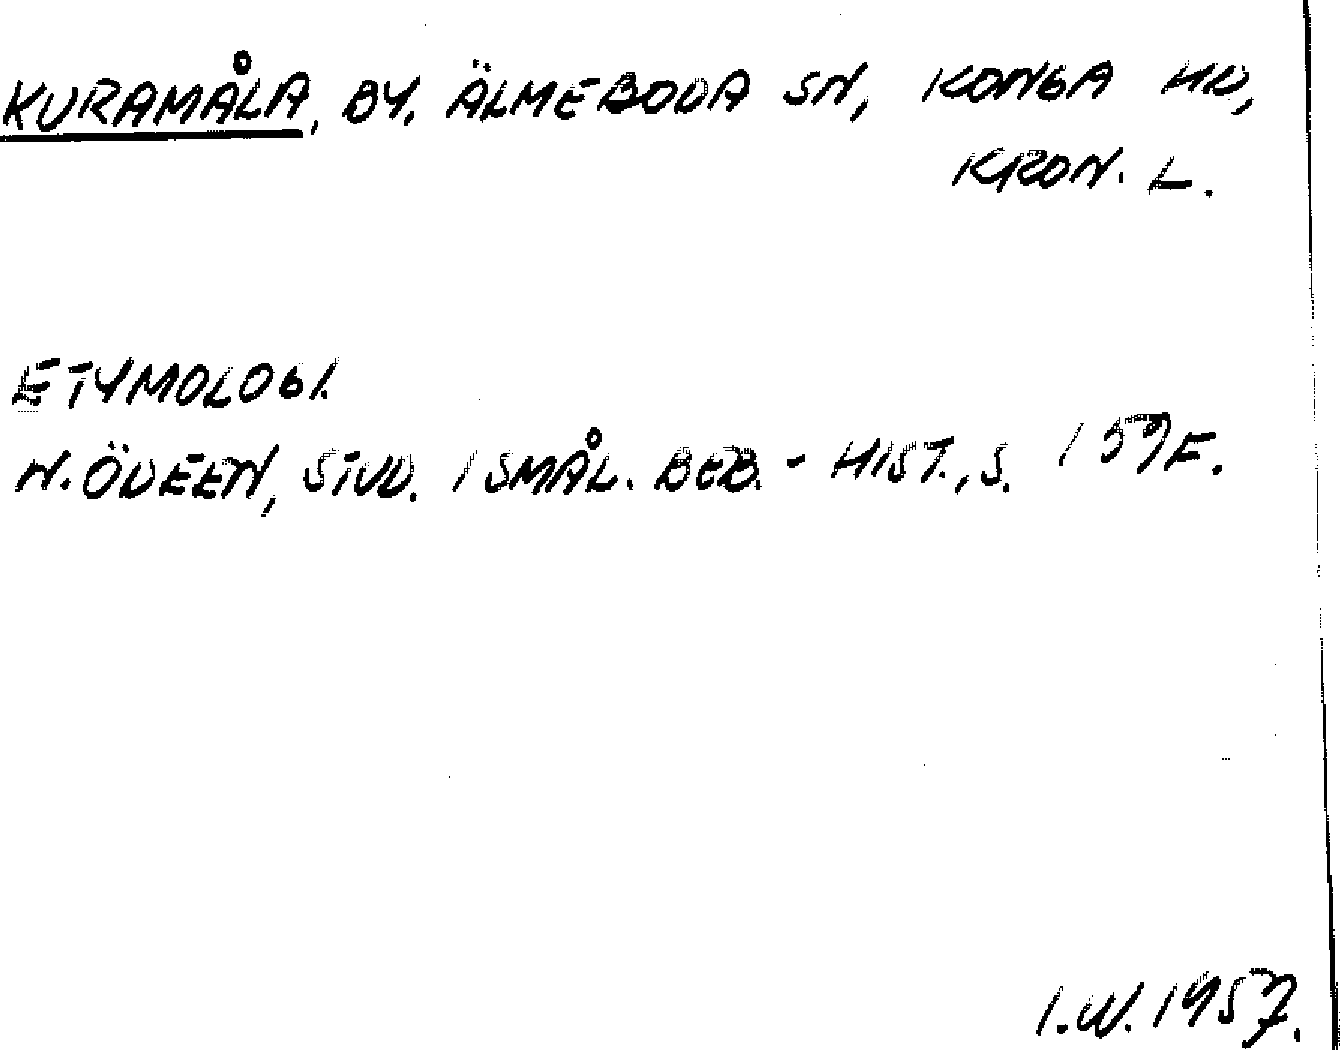 KURAMÅLA, BY. ÄLMEBODA SN, KONGA HD,
KRON. L.
ETYMOLOGI.
N. ÖDEEN, STUD. I SMÅL. BEB. - HIST., S. 159 F.
I.W. 1957.